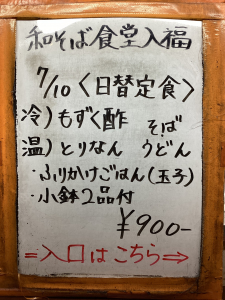 和そば食堂入福
7/10〈日替定食〉
冷)もずく酢 そば
温)とりなん うどん
・ふりかけごはん(玉子)
・小鉢2品付
¥900-
=入口はこちら⇒